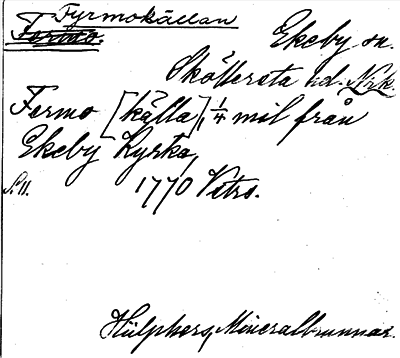 Fyrmokällan
Fermo.
Ekeby sn.
Sköllersta hd. Nrk.
Fermo [källa], 1/4 mil från
Ekeby Kyrka,
S. 11. 1770 Vetro.
Hülphers, Mineralbrunnar.